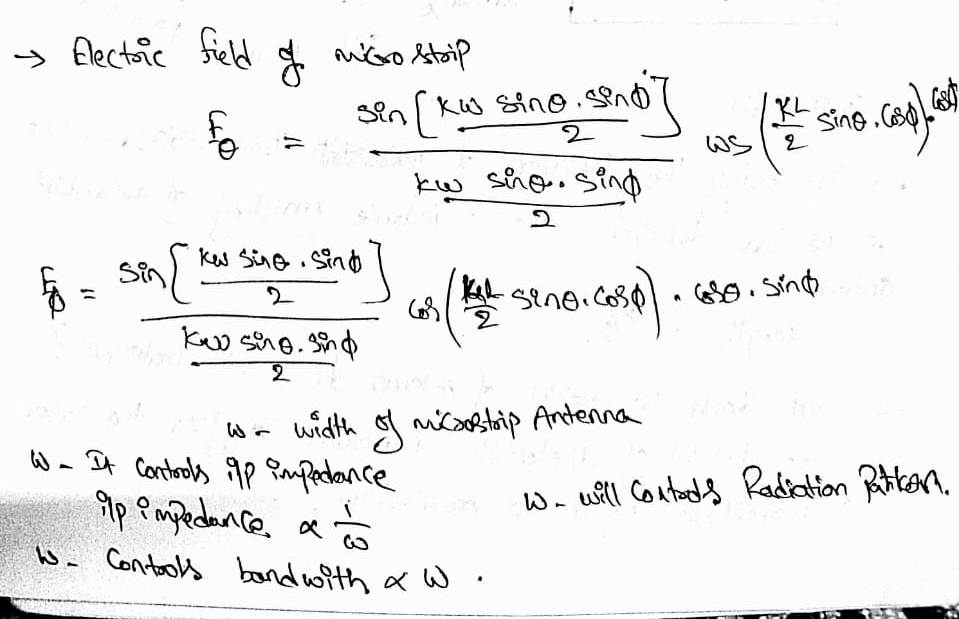 → Electric field of microstrip
E_θ = sin[kw sinθ . sinϕ / 2] / (kw sinθ . sinϕ / 2) cos(KL/2 sinθ . cosϕ) . cosϕ
E_ϕ = sin[kw sinθ . sinϕ / 2] / (kw sinθ . sinϕ / 2) cos(KL/2 sinθ . cosϕ) . cosθ . sinϕ
w - width of microstrip Antenna
w - It controls i/p impedance
i/p impedance ∝ 1/w
w - will Controls Radiation Pattern.
w - Controls bandwith ∝ w .